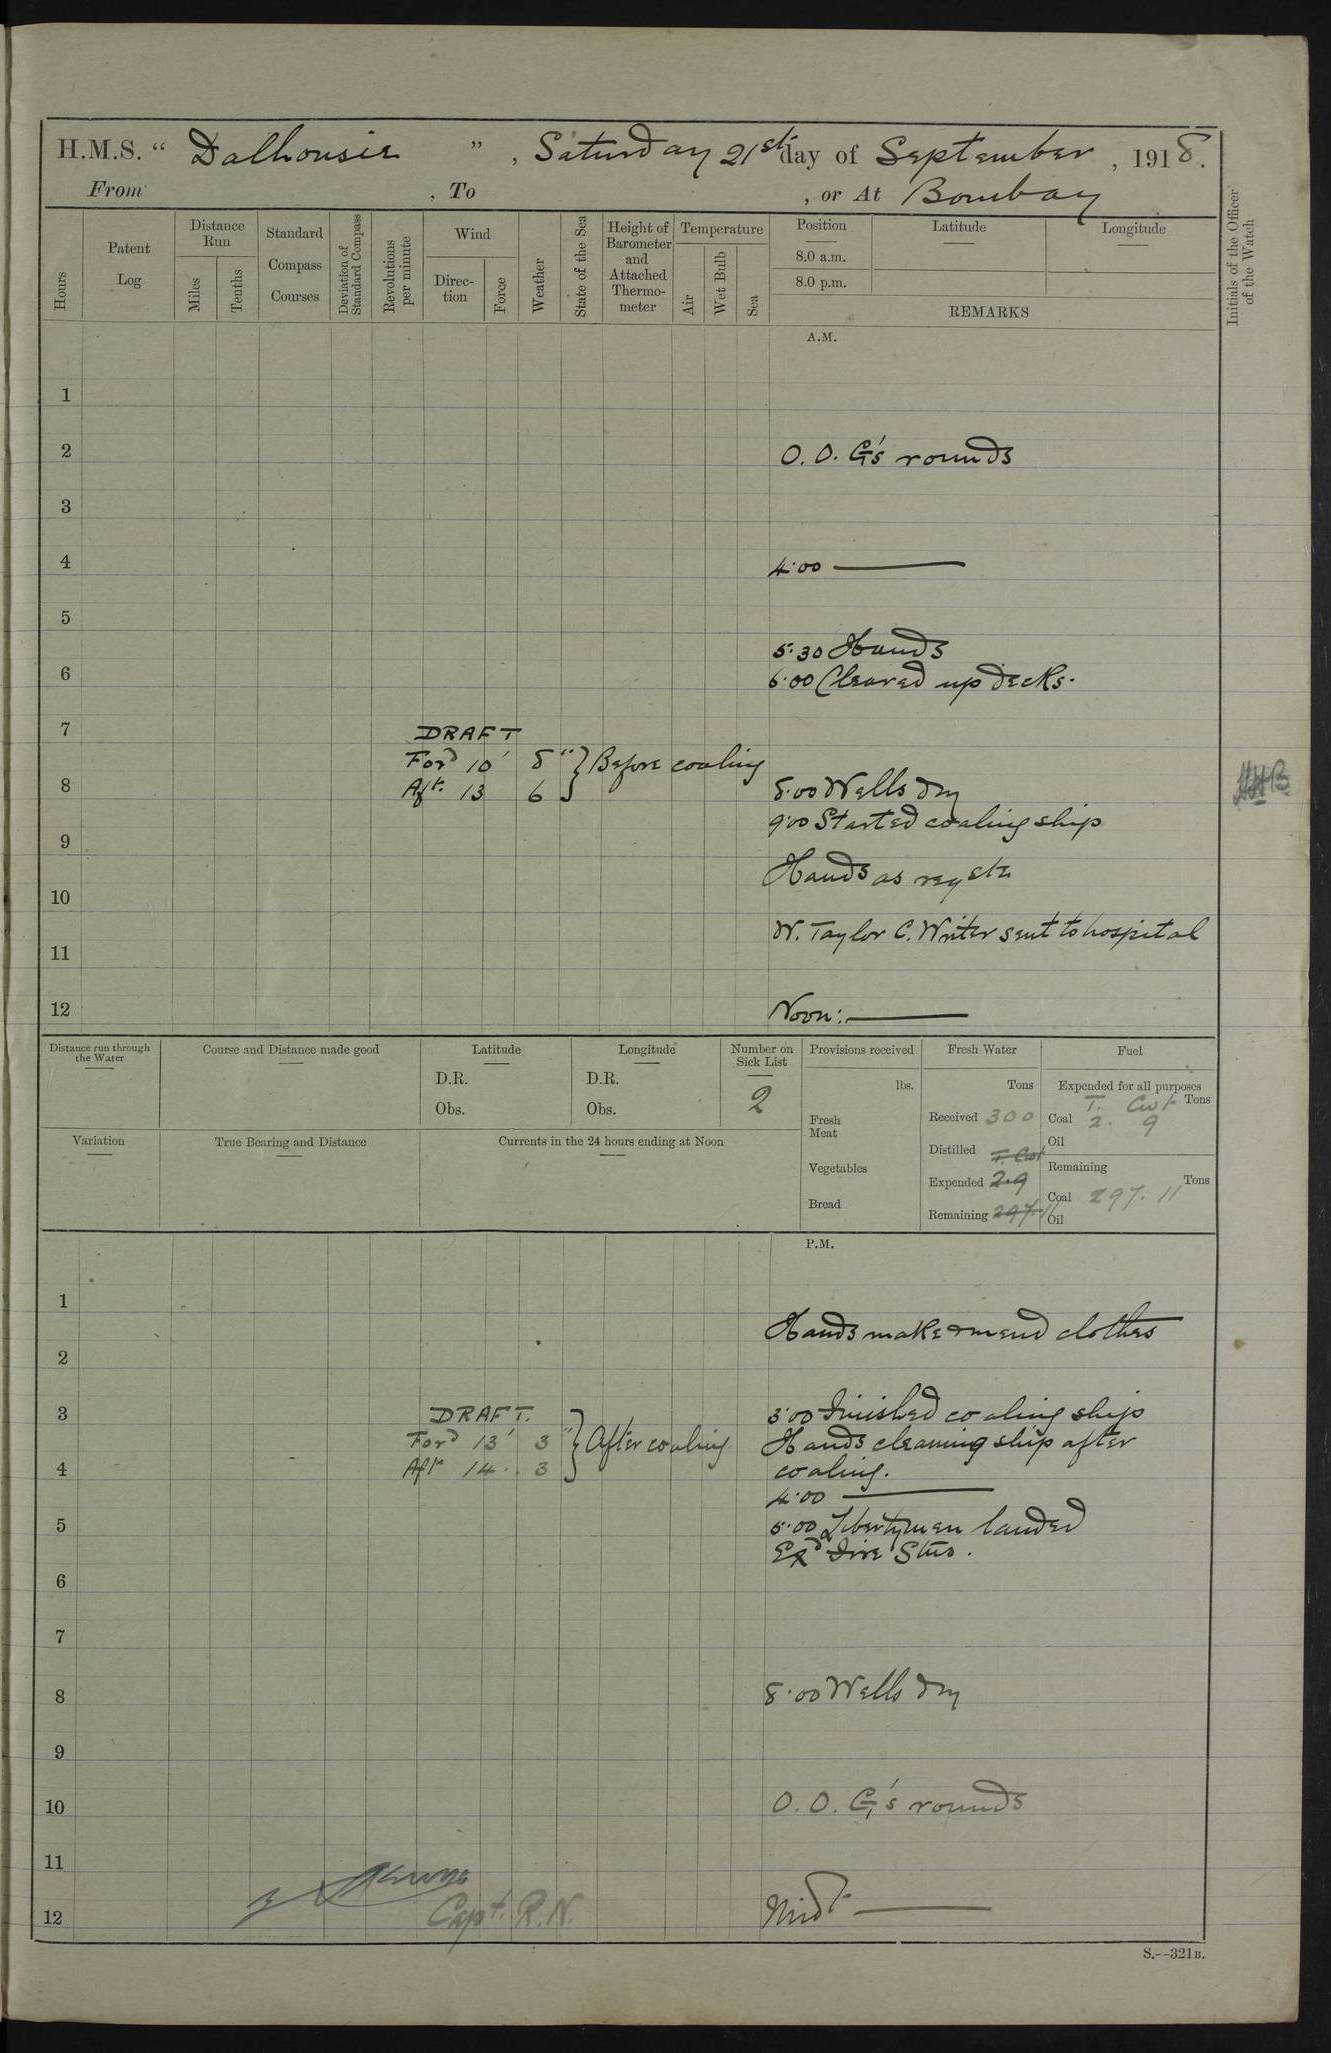 H.M.S. “ Dalhousie ” , Saturday 21st day of September , 1918.
From . To , or At Bombay
Hours
Patent Log
Distance Run
Miles
Tenths
Standard Compass Courses
Deviation of Standard Compass
Revolutions per minute
Wind
Direc-tion
Force
Weather
State of the Sea
Height of Barometer and Attached Thermo-meter
Temperature
Air
Wet Bulb
Sea
Position
8.0 a.m.
8.0 p.m.
Latitude
Longitude
REMARKS
Initials of the Officer of the Watch
A.M.
1
2 O. O. G's rounds
3
4 4.00 ———
5
5.30 Hands
6 6.00 Cleared up decks.
7 DRAFT
Ford 10' 8" } Before coaling
8 Aft. 13 6 8.00 Wells dry
9.00 Started coaling ship
9
Hands as
10
W. Taylor C. Writer sent to hospital
11
12 Noon: ———
Distance run through the Water
Course and Distance made good
Latitude
D.R.
Obs.
Longitude
D.R.
Obs.
Number on Sick List
2
Variation
True Bearing and Distance
Currents in the 24 hours ending at Noon
Provisions received
lbs.
Fresh Meat
Vegetables
Bread
Fresh Water
Tons
Received 300
Distilled T. Cwt
Expended 2.9
Remaining 297.11
Fuel
Expended for all purposes
T. Cwt Tons
Coal 2. 9
Oil
Remaining
Tons
Coal 297. 11
Oil
P.M.
1
Hands make & mend clothes
2
3 DRAFT. 3.00 Finished coaling ship
Ford 13' 3" } After coaling Hands cleaning ship after
4 Aft 14 . 3 coaling.
4.00 ———
5 5.00 Libertymen landed
Exd Fire Stns.
6
7
8 8.00 Wells dry
9
10 O. O. G's rounds
11
12 Capt. R.N. Midt ———
S.--321B.